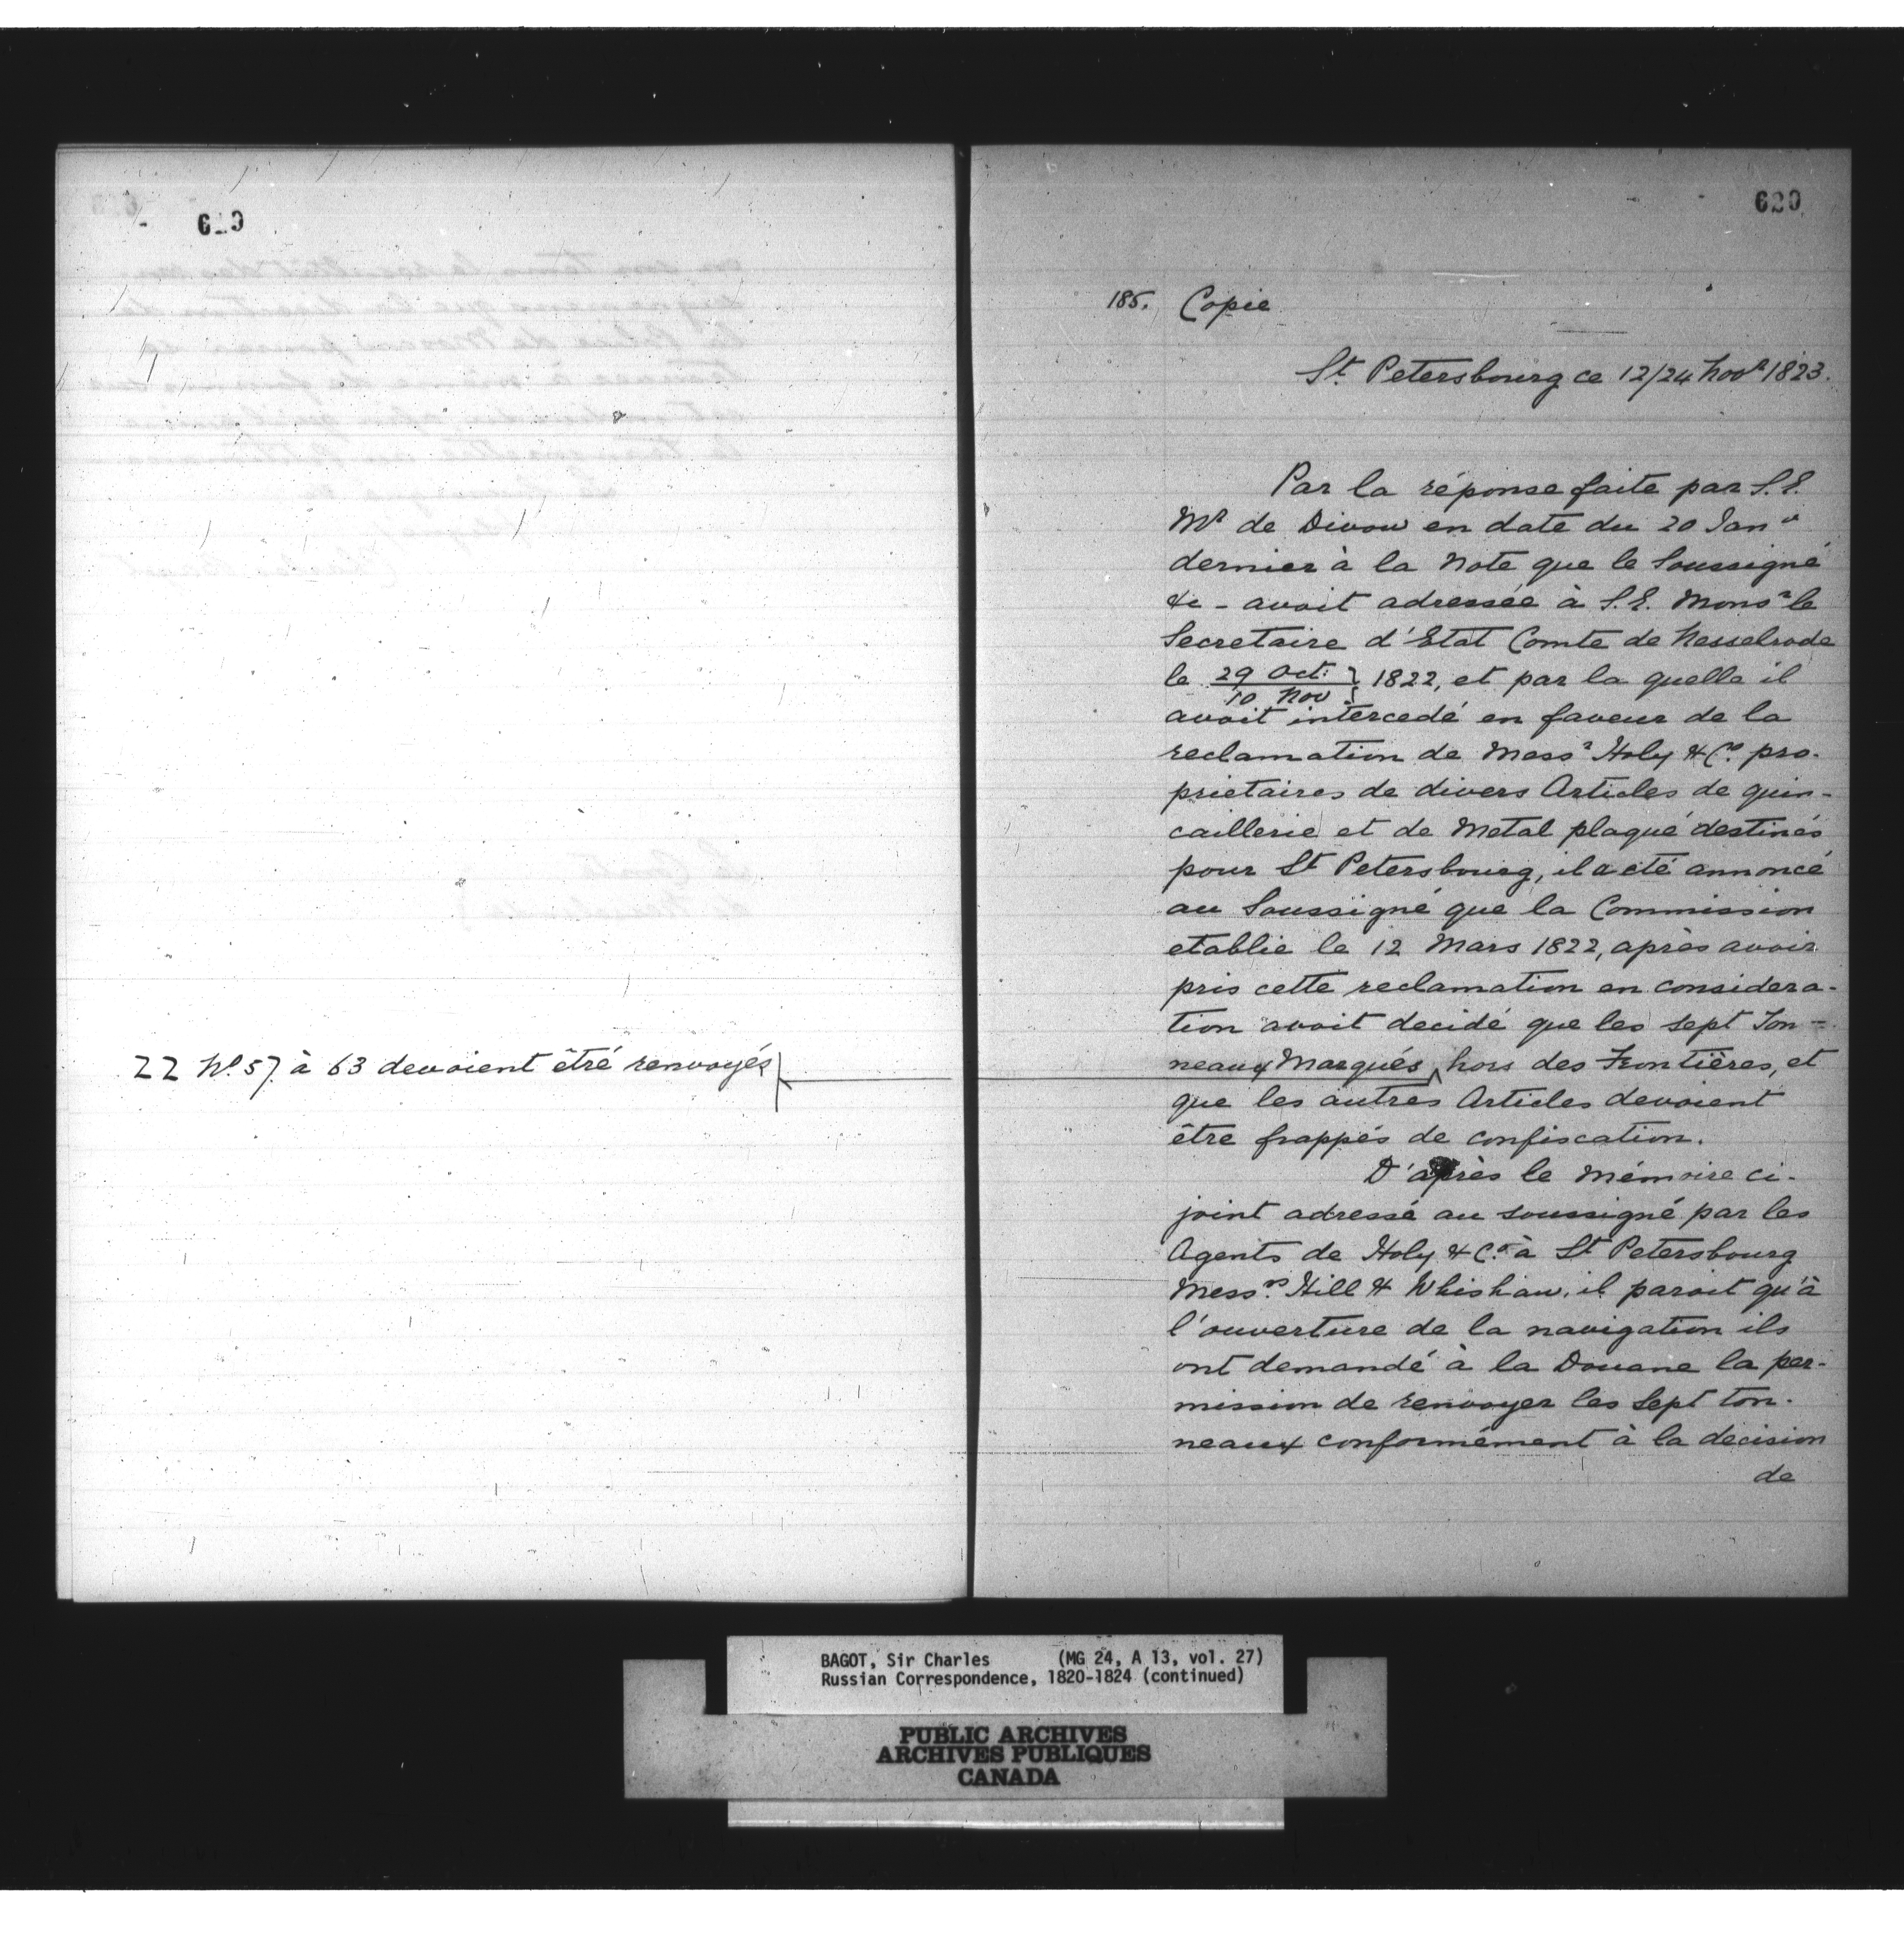 619
22 No. 57 à 63 devoient être renvoyés
620
185. Copie
St. Petersbourg ce 12/24 Novr 1823.
Par la réponse faite par S.E.
Mr de Divow en date du 20 Janv
dernier à la Note que le Soussigné
&c - avoit adressée à S.E. Monsr le
Secretaire d'Etat Comte de Nesselrode
le 29 Oct: / 10 Nov } 1822, et par la quelle il
avoit intercedé en faveur de la
reclamation de Messr Holy & Co. pro-
prietaires de divers Articles de quin-
caillerie et de Metal plaqué destinés
pour St Petersbourg, il a été annoncé
au Soussigné que la Commission
etablie le 12 Mars 1822, après avoir
pris cette reclamation en considera-
tion avoit decidé que les sept Ton-
neaux Marqués hors des Frontières, et
que les autres Articles devoient
être frappés de confiscation.
D'après le Mémoire ci-
joint adressé au soussigné par les
Agents de Holy & Co. à St Petersbourg
Messrs. Hill & Whishaw, il paroit qu'à
l'ouverture de la navigation ils
ont demandé à la Douane la per-
mission de renvoyer les sept ton-
neaux conformément à la decision
de
BAGOT, Sir Charles (MG 24, A 13, vol. 27)
Russian Correspondence, 1820-1824 (continued)
PUBLIC ARCHIVES
ARCHIVES PUBLIQUES
CANADA